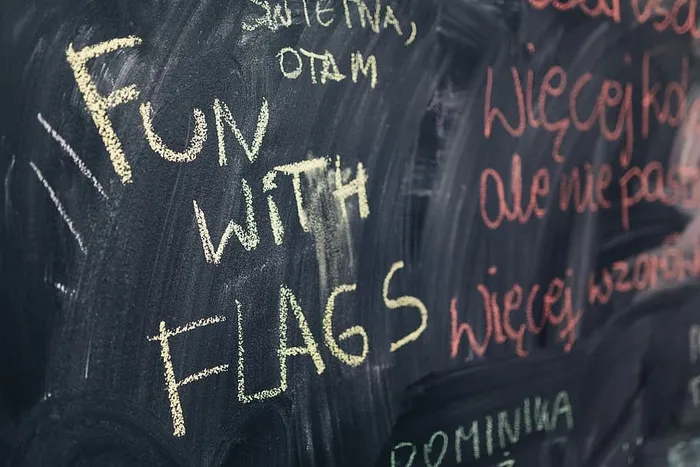 ŚWIETNA,
OTAM
FUN
WITH
FLAGS
Więcej
ale nie
Więcej wzorów
DOMINIKA